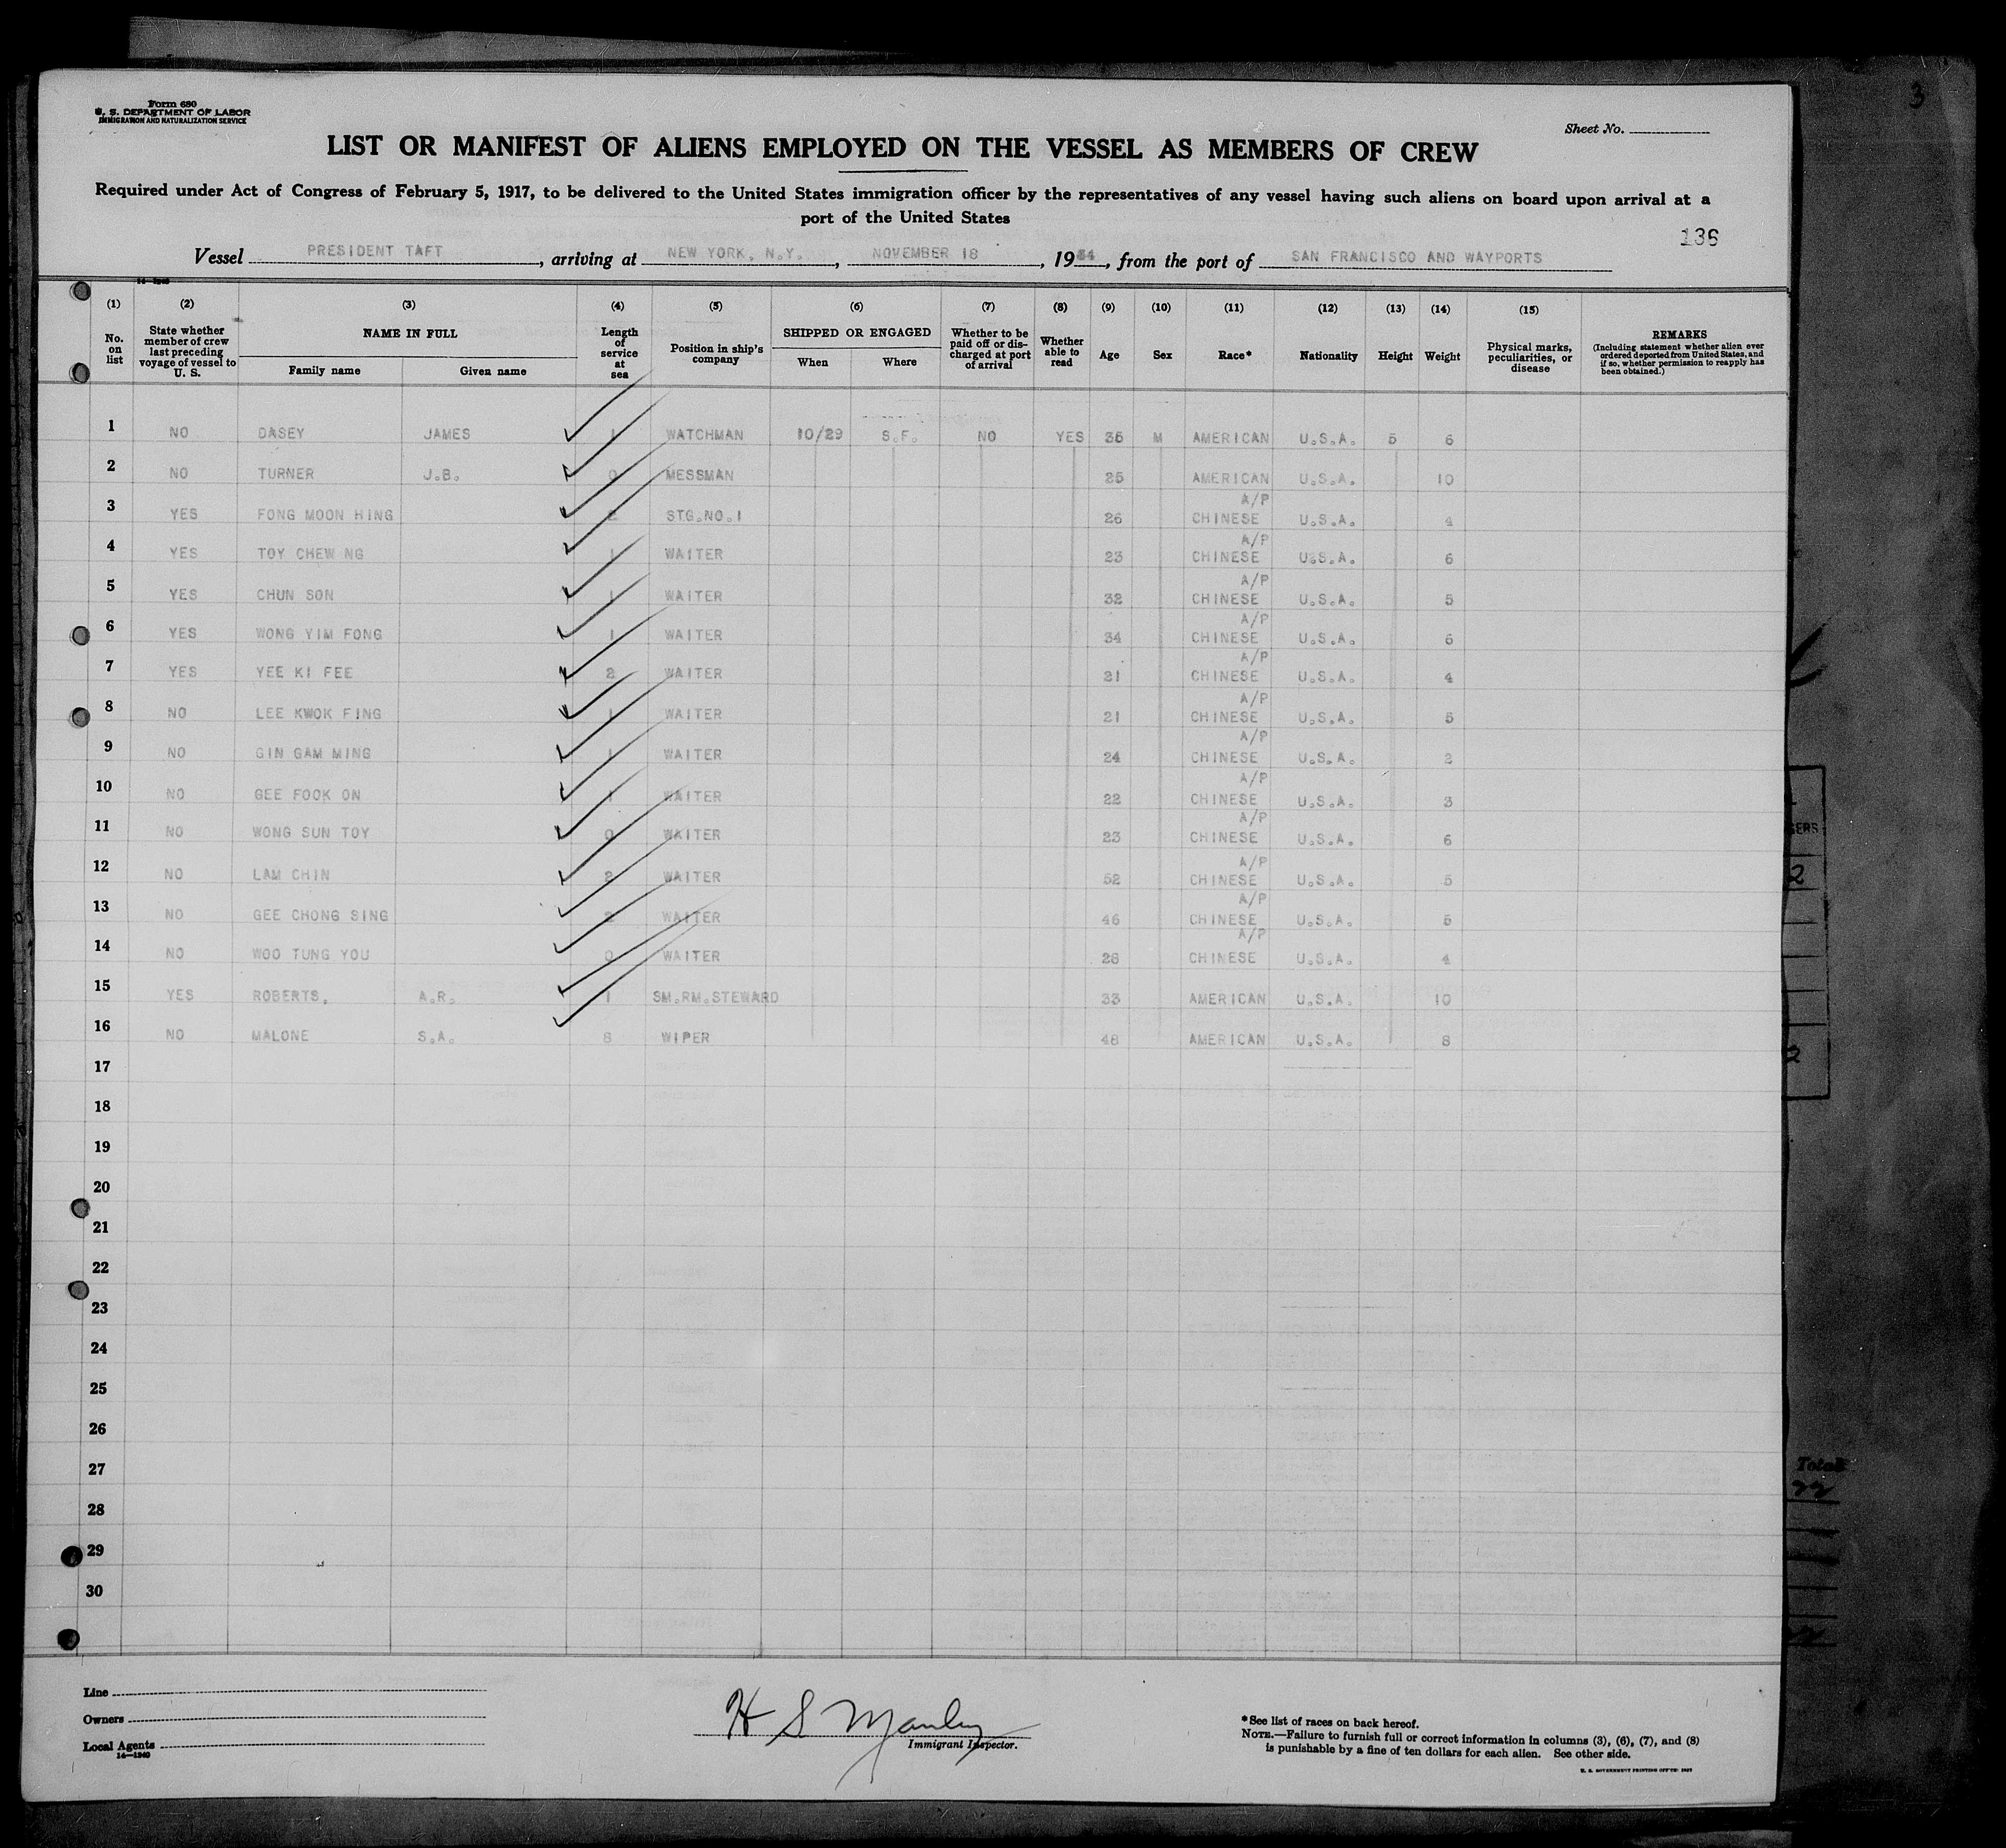 3
Form 680
U. S. DEPARTMENT OF LABOR
IMMIGRATION AND NATURALIZATION SERVICE
Sheet No.
LIST OR MANIFEST OF ALIENS EMPLOYED ON THE VESSEL AS MEMBERS OF CREW
Required under Act of Congress of February 5, 1917, to be delivered to the United States immigration officer by the representatives of any vessel having such aliens on board upon arrival at a
port of the United States
136
Vessel PRESIDENT TAFT, arriving at NEW YORK, N.Y., NOVEMBER 18, 1934, from the port of SAN FRANCISCO AND WAYPORTS
(1) (2) (3) (4) (5) (6) (7) (8) (9) (10) (11) (12) (13) (14) (15)
No. on list
State whether member of crew last preceding voyage of vessel to U. S.
NAME IN FULL
Family name
Given name
Length of service at sea
Position in ship's company
SHIPPED OR ENGAGED
When
Where
Whether to be paid off or discharged at port of arrival
Whether able to read
Age
Sex
Race*
Nationality
Height
Weight
Physical marks, peculiarities, or disease
REMARKS
(Including statement whether alien ever ordered deported from United States, and if so, whether permission to reapply has been obtained.)
1 NO DASEY JAMES 1 WATCHMAN 10/29 S.F. NO YES 36 M AMERICAN U.S.A. 5 6
2 NO TURNER J.B. 0 MESSMAN 25 AMERICAN U.S.A. 10
3 YES FONG MOON HING 2 STG.NO.1 26 A/P CHINESE U.S.A. 4
4 YES TOY CHEW NG 1 WAITER 23 A/P CHINESE U.S.A. 6
5 YES CHUN SON 1 WAITER 32 A/P CHINESE U.S.A. 5
6 YES WONG YIM FONG 1 WAITER 34 A/P CHINESE U.S.A. 6
7 YES YEE KI FEE 2 WAITER 21 A/P CHINESE U.S.A. 4
8 NO LEE KWOK FING 1 WAITER 21 A/P CHINESE U.S.A. 5
9 NO GIN GAM MING 1 WAITER 24 A/P CHINESE U.S.A. 2
10 NO GEE FOOK ON 1 WAITER 22 A/P CHINESE U.S.A. 3
11 NO WONG SUN TOY 0 WAITER 23 A/P CHINESE U.S.A. 6
12 NO LAM CHIN 2 WAITER 52 A/P CHINESE U.S.A. 5
13 NO GEE CHONG SING 2 WAITER 46 A/P CHINESE U.S.A. 5
14 NO WOO TUNG YOU 0 WAITER 28 A/P CHINESE U.S.A. 4
15 YES ROBERTS, A.R. 1 SM.RM.STEWARD 33 AMERICAN U.S.A. 10
16 NO MALONE S.A. 8 WIPER 48 AMERICAN U.S.A. 8
17
18
19
20
21
22
23
24
25
26
27
28
29
30
Total
22
Line
Owners
Local Agents
14—1240
H S Manley
Immigrant Inspector.
*See list of races on back hereof.
NOTE.—Failure to furnish full or correct information in columns (3), (6), (7), and (8)
is punishable by a fine of ten dollars for each alien. See other side.